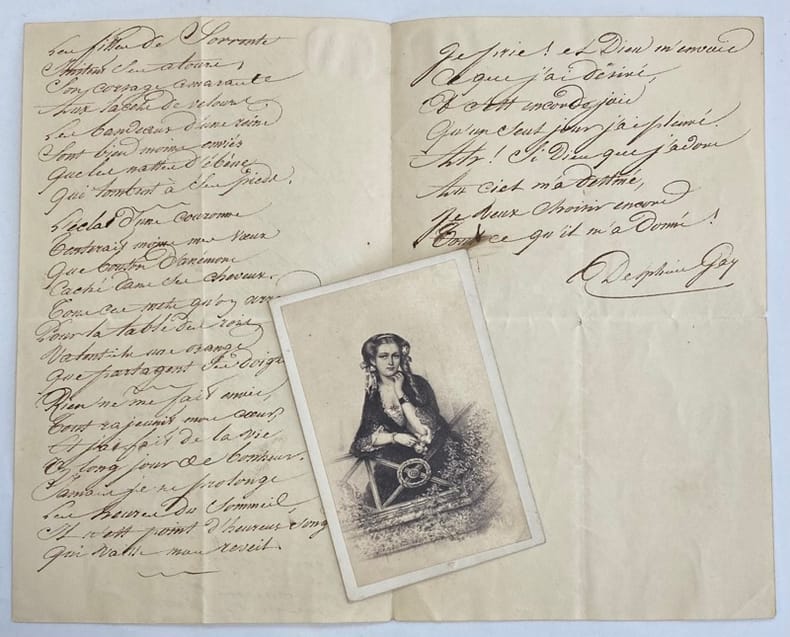 Les filles de Sorrente
Son corsage amarante
Aux façons de velours
Les bandeaux d'une reine
Sont bien moins enviés
Que les nattes d'ébène
Qui tombent à ses pieds.
L'éclat d'une couronne
même mes vœux
Que bouton d'anémone
Caché dans ses cheveux.
Tous ces mets qu'on y
Pour la table des rois,
Valent-ils une orange
Que partagent ses doigts
Rien ne me fait envie,
Tout rajeunit mon cœur,
Et j'ai fait de la vie
Un long jour de bonheur.
Jamais je ne prolonge
Les heures du sommeil
Il n'est point d'heureux songe
Qui vaille mon reveil.
Je prie ! et Dieu m'envoie
Ce que j'ai désiré,
Et c'est encor de joie
Qu'un seul jour j'ai pleuré.
Ah ! Si Dieu que j'adore
Au ciel m'a destiné,
Je veux choisir encore
Tout ce qu'il m'a donné !
Delphine Gay